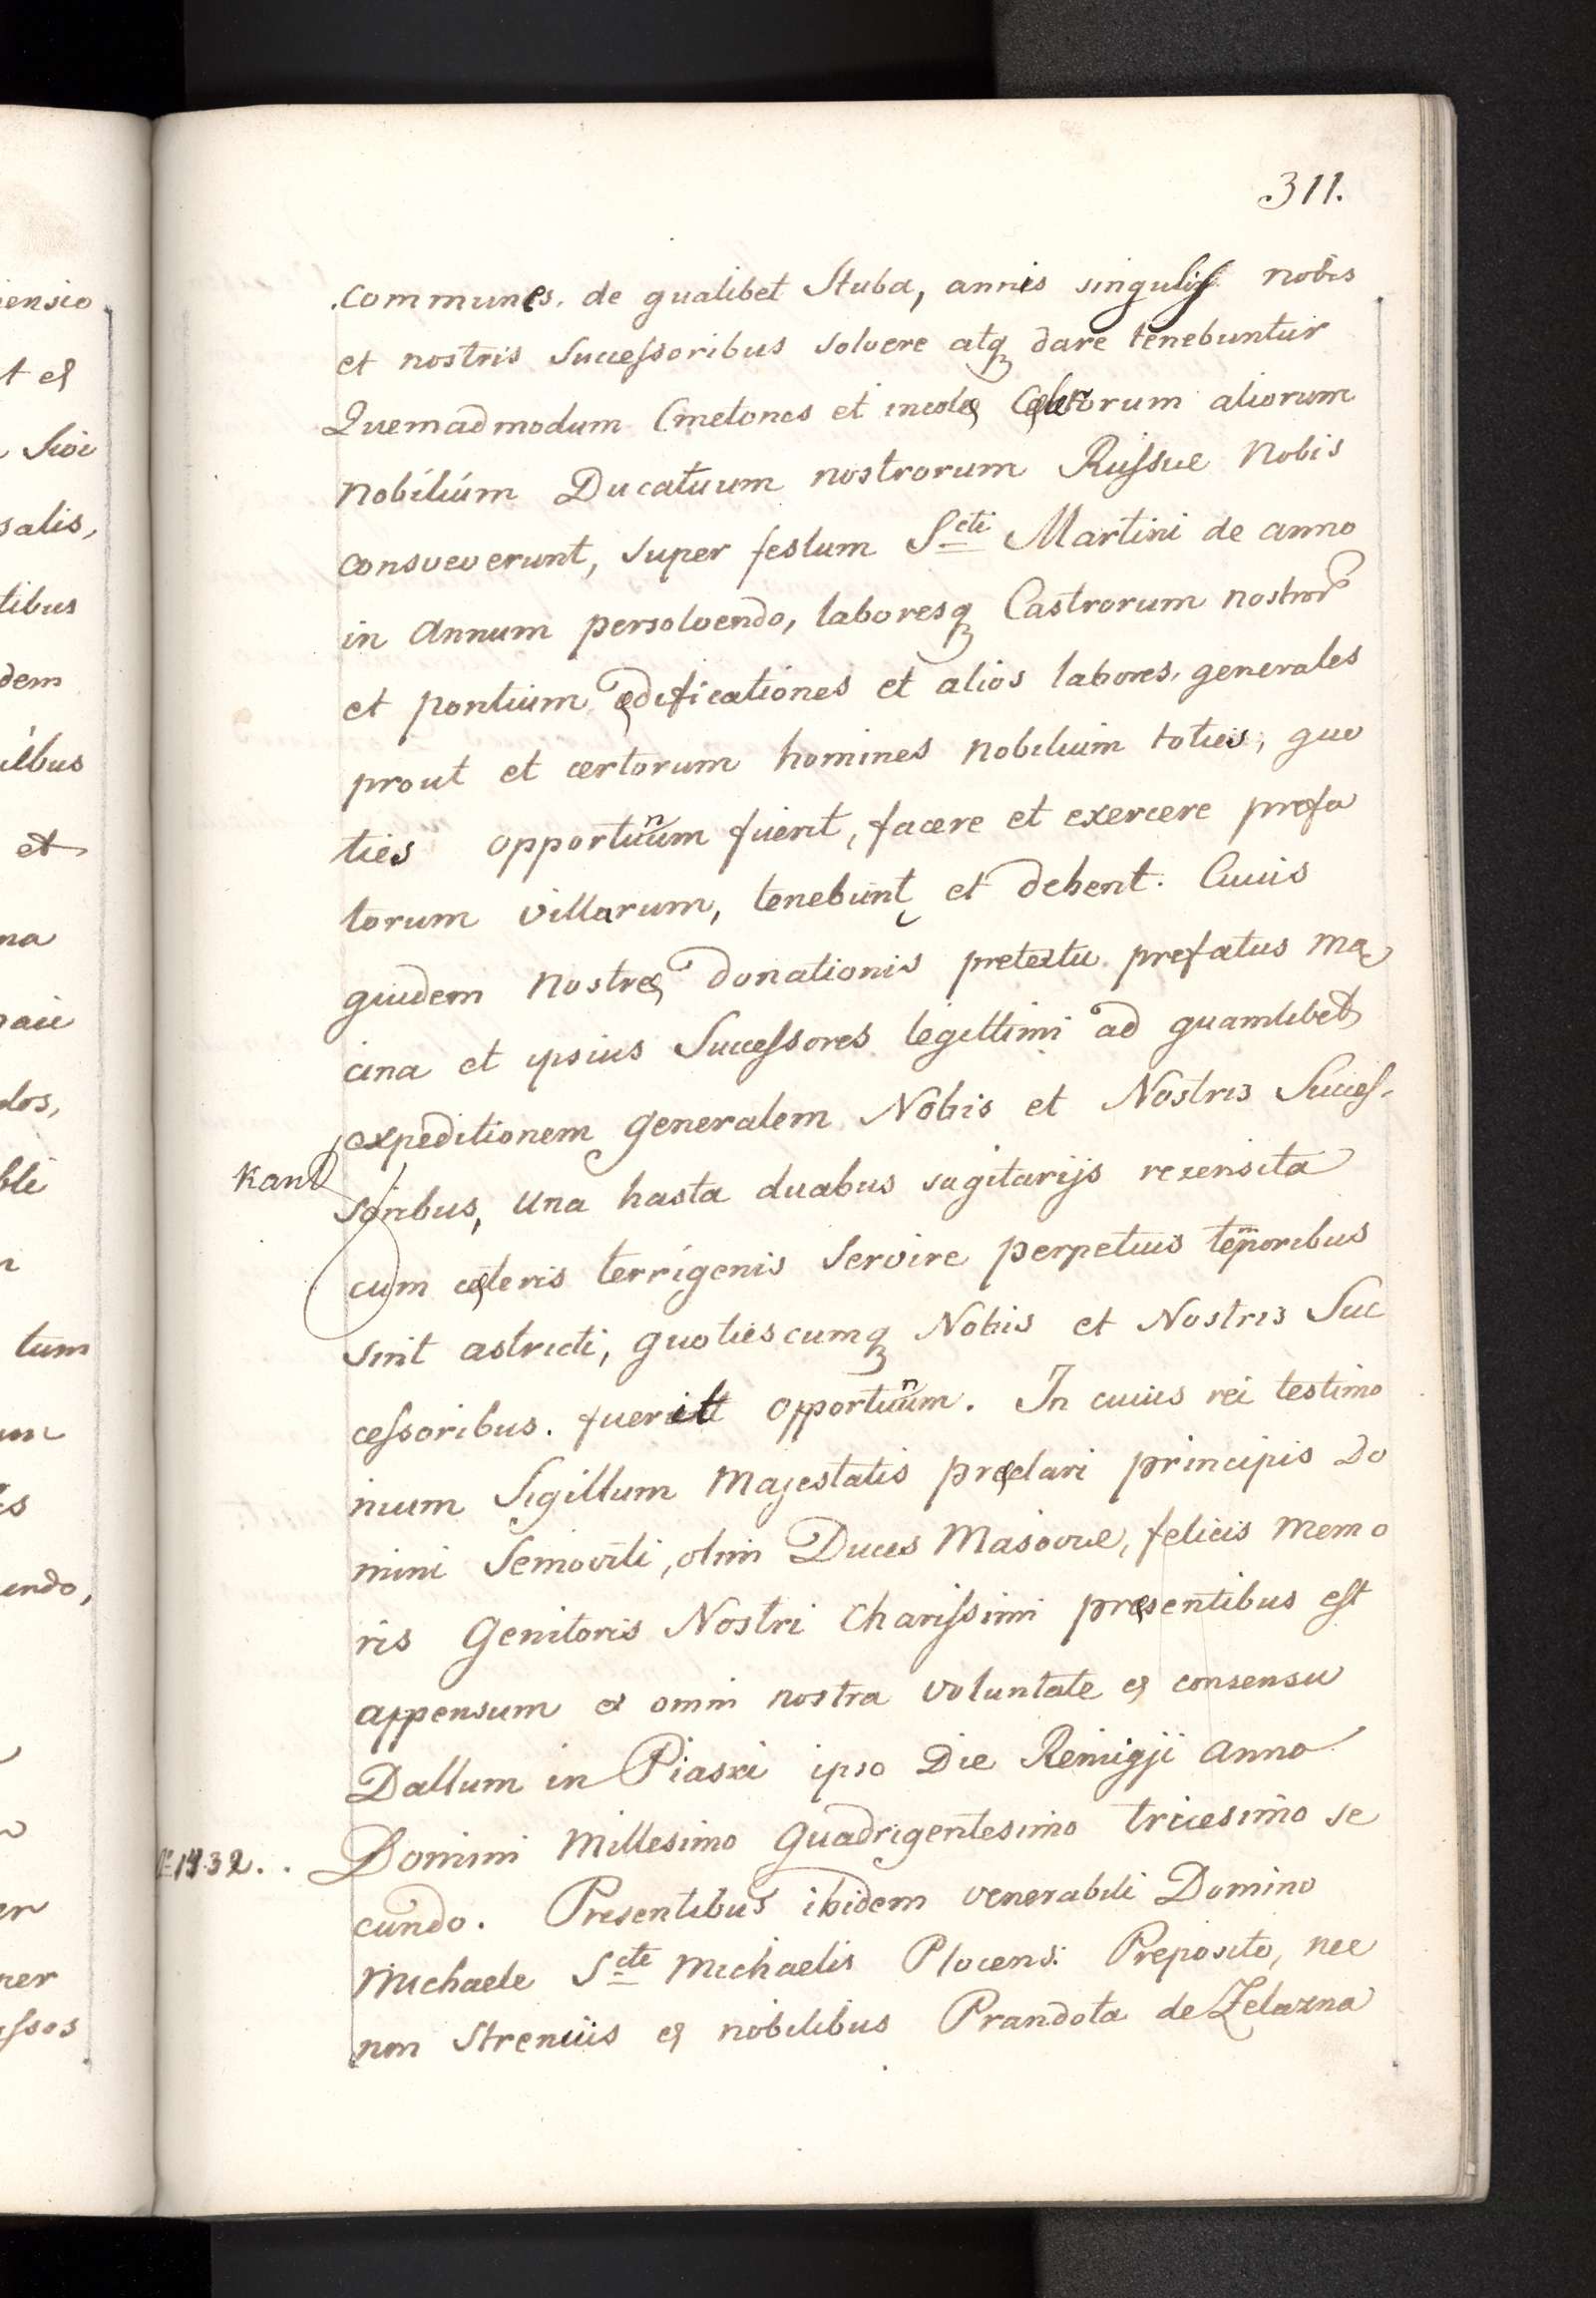 311.
communes. de qualibet Stuba, annis singulis nobis
et nostris Successoribus solvere atq dare tenebuntur
Quemadmodum Cmetones et incolę Cęterorum aliorum
Nobilium Ducatuum nostrorum Russue Nobis
consveverunt, super festum Scti Martini de anno
in Annum persolvendo, laboresq Castrorum nostror
et pontium ędificationes et alios labores, generales
prout et certorum homines nobilium toties, quo
ties opportunum fuerit, facere et exercere prefa
torum villarum, tenebunt et debent. Cuius
quidem nostrę donationis pretextu prefatus Ma
cina et ipsius Successores legittimi ad quamlibet
expeditionem generalem Nobis et Nostris Succes-
Kan
soribus, una hasta duabus sagitarijs rezensita
cum cęteris terrigenis Servire perpetuis temporibus
sint astricti, quotiescumq Nobis et Nostris Suc
cessoribus. fuerit opportunum. In cuius rei testimo
nium Sigillum Majestatis pręclari principis Do
mini Semoviti, olim Ducis Masovue, felicis memo
ris Genitoris Nostri Charissimi pręsentibus est
appensum ex omni nostra voluntate et consensu
Dattum in Piaski ipso Die Remigji anno
1432.. Domini Millesimo Quadrigentesimo tricesimo se
cundo. Presentibus ibidem venerabili Domino
Michaele Scti Michaelis Plocens: Preposito, nec
non Strenuis et nobilibus Prandota de Zelazna
iensio
t et
salis,
tibus
dem
ilbus
et
na
dos,
bli
tum
endo,
er
per
ssos